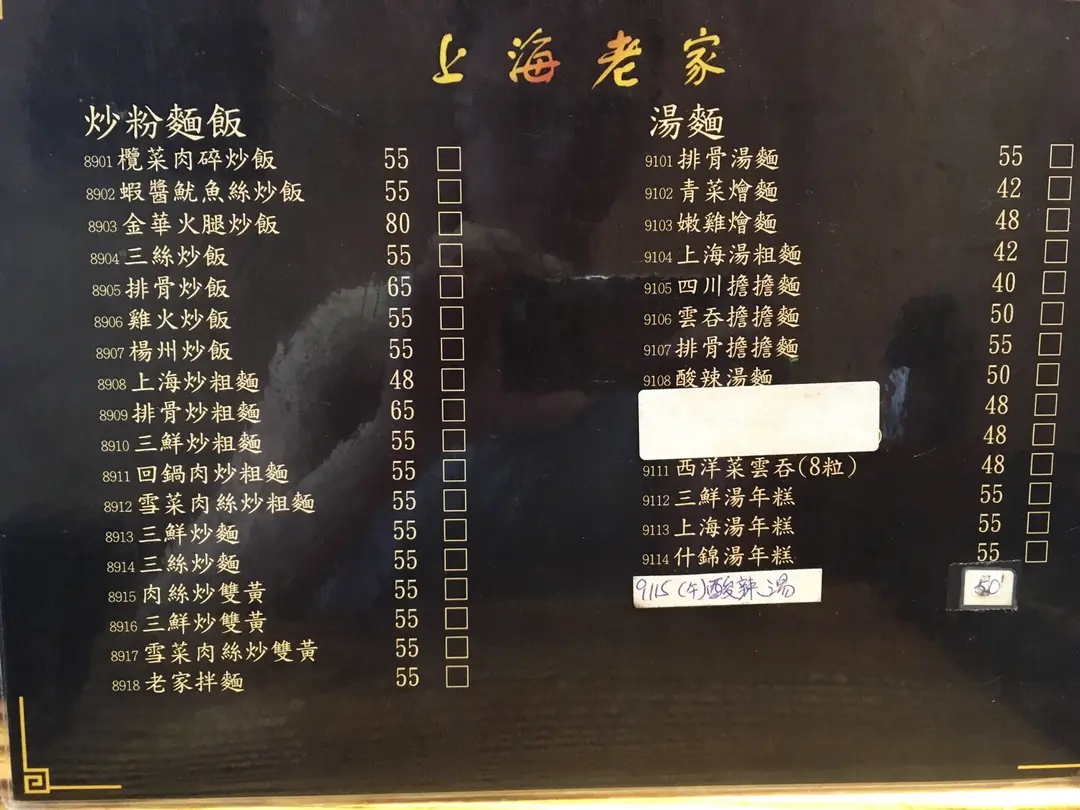 上海老家
炒粉麵飯
8901 欖菜肉碎炒飯 55 □
8902 蝦醬魷魚絲炒飯 55 □
8903 金華火腿炒飯 80 □
8904 三絲炒飯 55 □
8905 排骨炒飯 65 □
8906 雞火炒飯 55 □
8907 楊州炒飯 55 □
8908 上海炒粗麵 48 □
8909 排骨炒粗麵 65 □
8910 三鮮炒粗麵 55 □
8911 回鍋肉炒粗麵 55 □
8912 雪菜肉絲炒粗麵 55 □
8913 三鮮炒麵 55 □
8914 三絲炒麵 55 □
8915 肉絲炒雙黃 55 □
8916 三鮮炒雙黃 55 □
8917 雪菜肉絲炒雙黃 55 □
8918 老家拌麵 55 □
湯麵
9101 排骨湯麵 55 □
9102 青菜燴麵 42 □
9103 嫩雞燴麵 48 □
9104 上海湯粗麵 42 □
9105 四川擔擔麵 40 □
9106 雲吞擔擔麵 50 □
9107 排骨擔擔麵 55 □
9108 酸辣湯麵 50 □
48 □
48 □
9111 西洋菜雲吞(8粒) 48 □
9112 三鮮湯年糕 55 □
9113 上海湯年糕 55 □
9114 什錦湯年糕 55 □
9115 (牛)酸辣湯 50